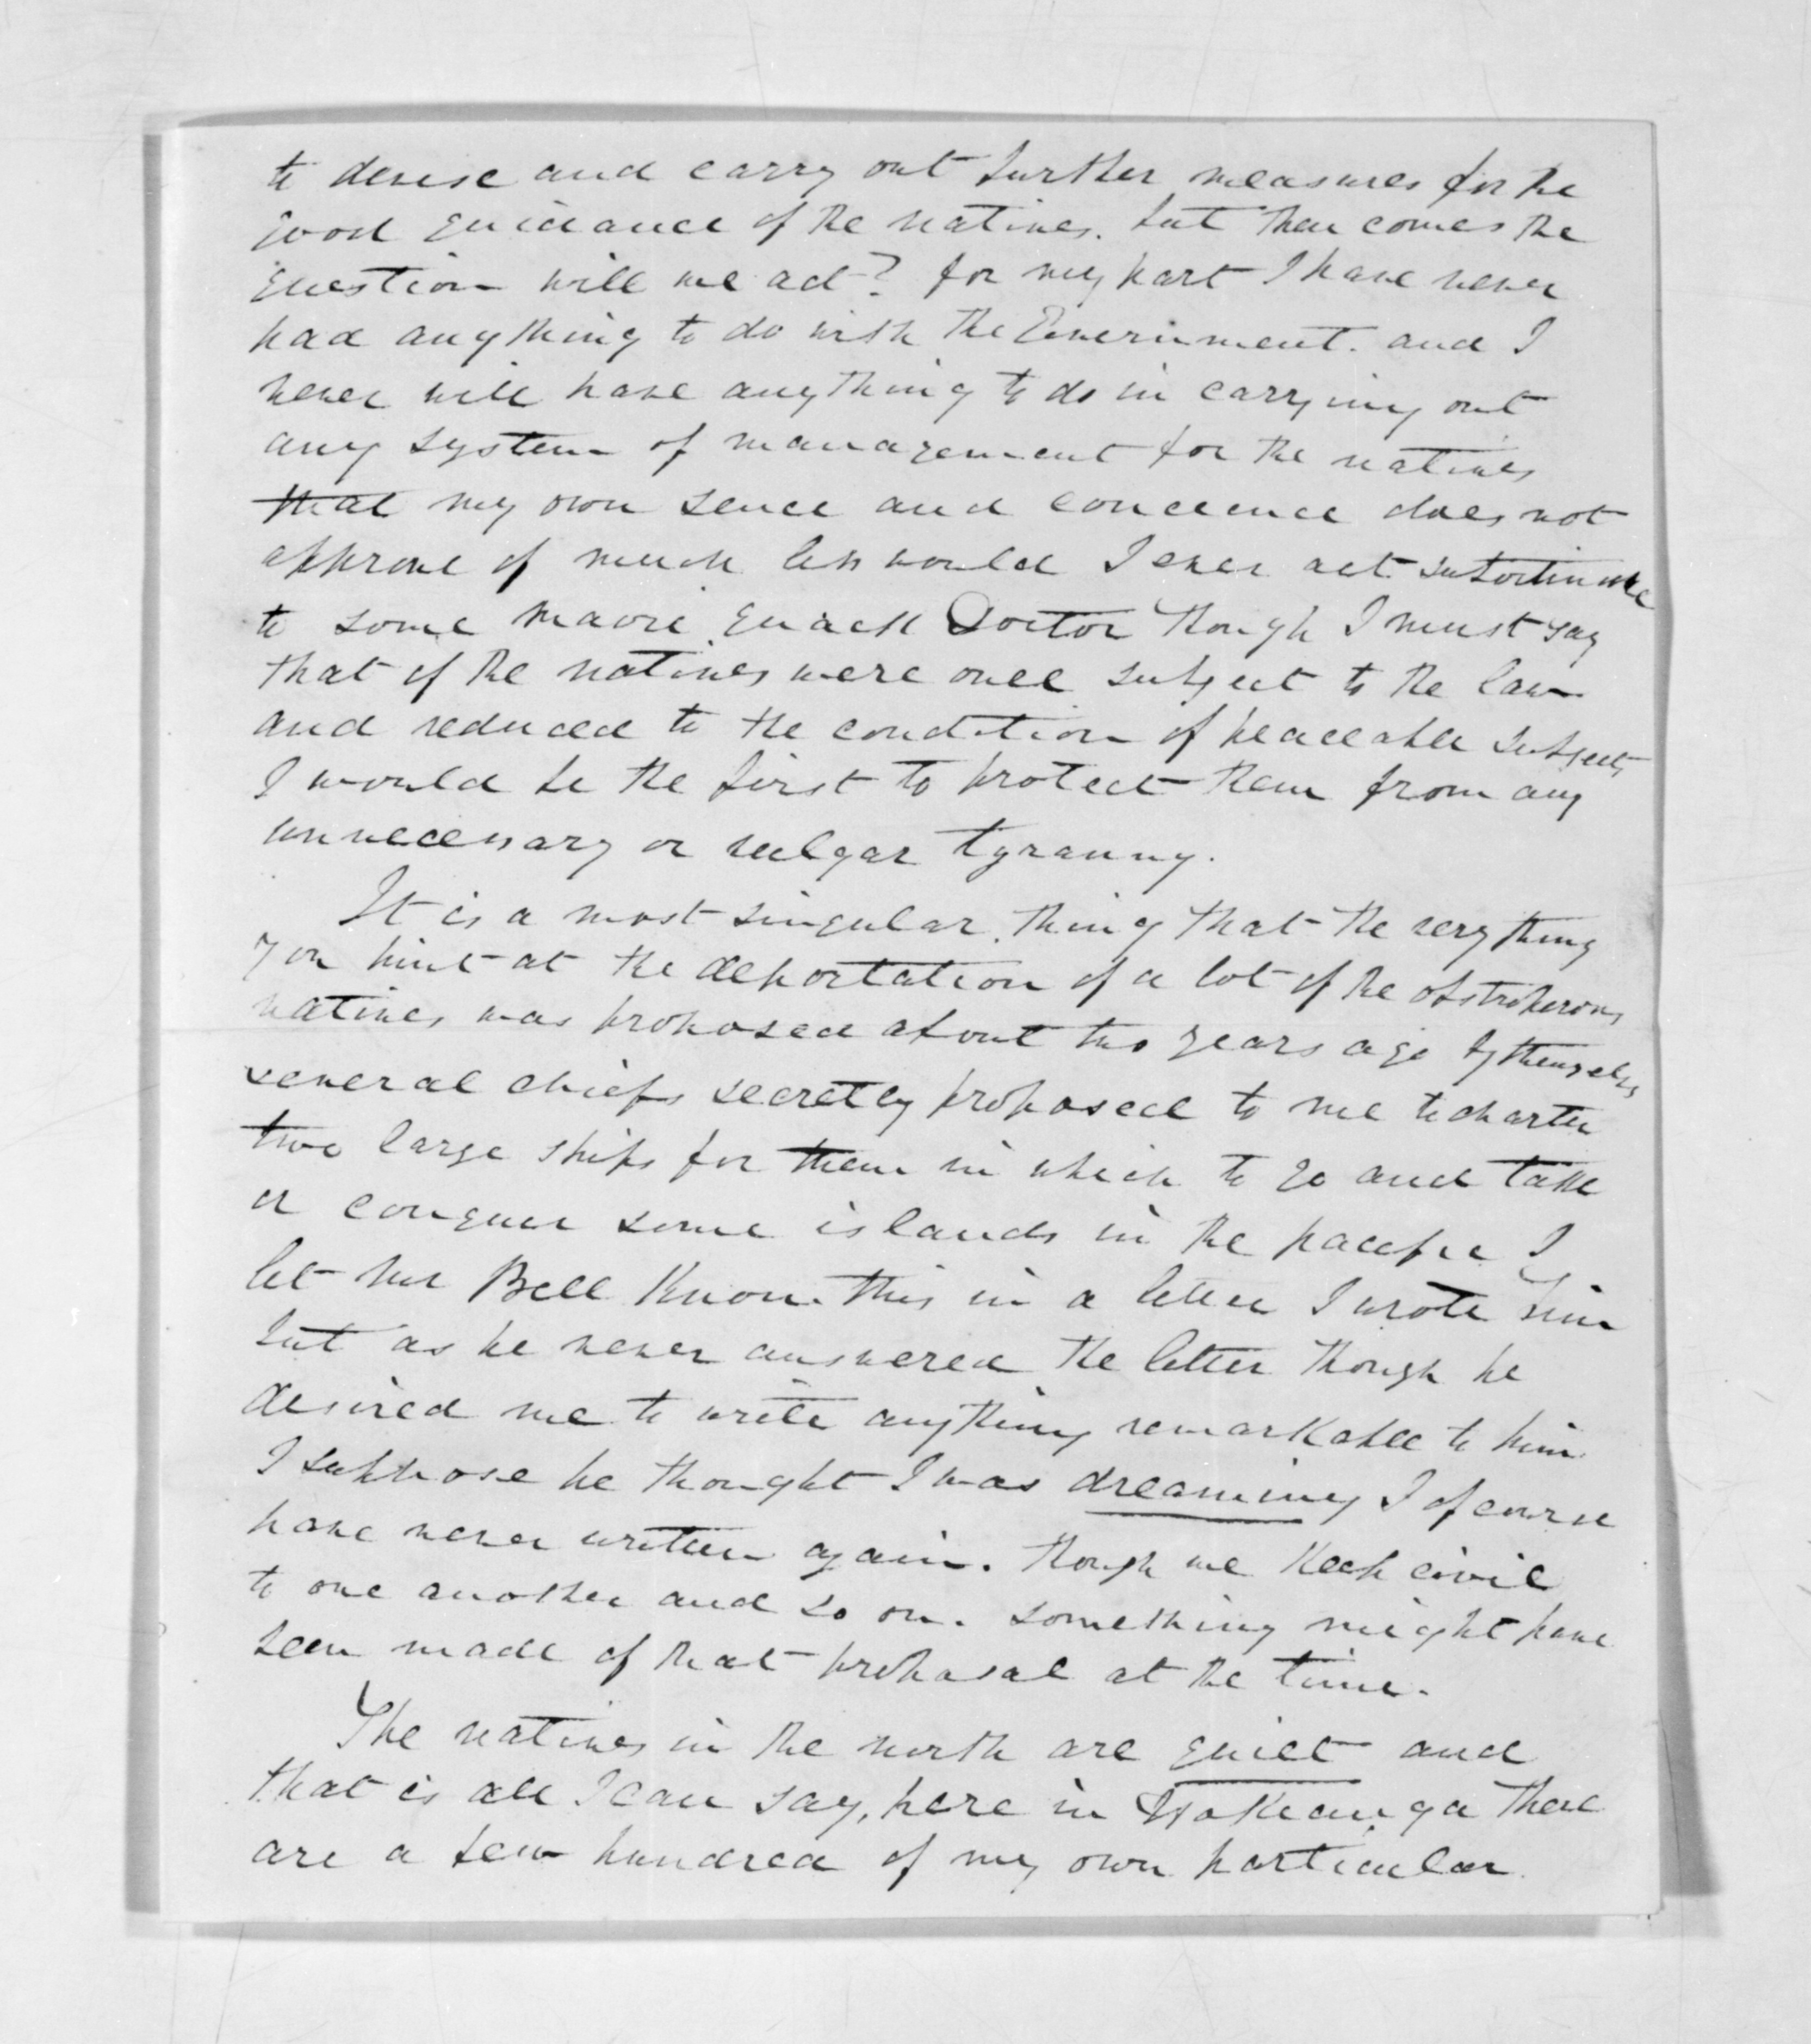 to devise and carry out further measures for the
good guidance of the natives. but then comes the
question will we act? for my part I have never
had anything to do with the Government. and I
never will have anything to do in carrying out
any system of management for the natives
that my own sence and concience does not
approve of much less would I ever act subordinate
to some maori quack Doctor though I must say
that if the natives were once subject to the law
and reduced to the condition of peaceable subjects
I would be the first to protect them from any
unnecessary or vulgar tyranny.
It is a most singular thing that the very thing
you hint at the deportation of a lot of the obstreperous
natives was proposed about two years ago by themselves
several chiefs secretly proposed to me to charter
two large ships for them in which to go and take
or conquer some islands in the pacific I
let Mr Bell know this in a letter I wrote him
but as he never answered the letter though he
desired me to write anything remarkable to him
I suppose he thought I was dreaming I of course
have never written again. though we keep civil
to one another and so on. something might have
been made of that proposal at the time.
The natives in the north are quiet and
that is all I can say, here in Hokianga there
are a few hundred of my own particular